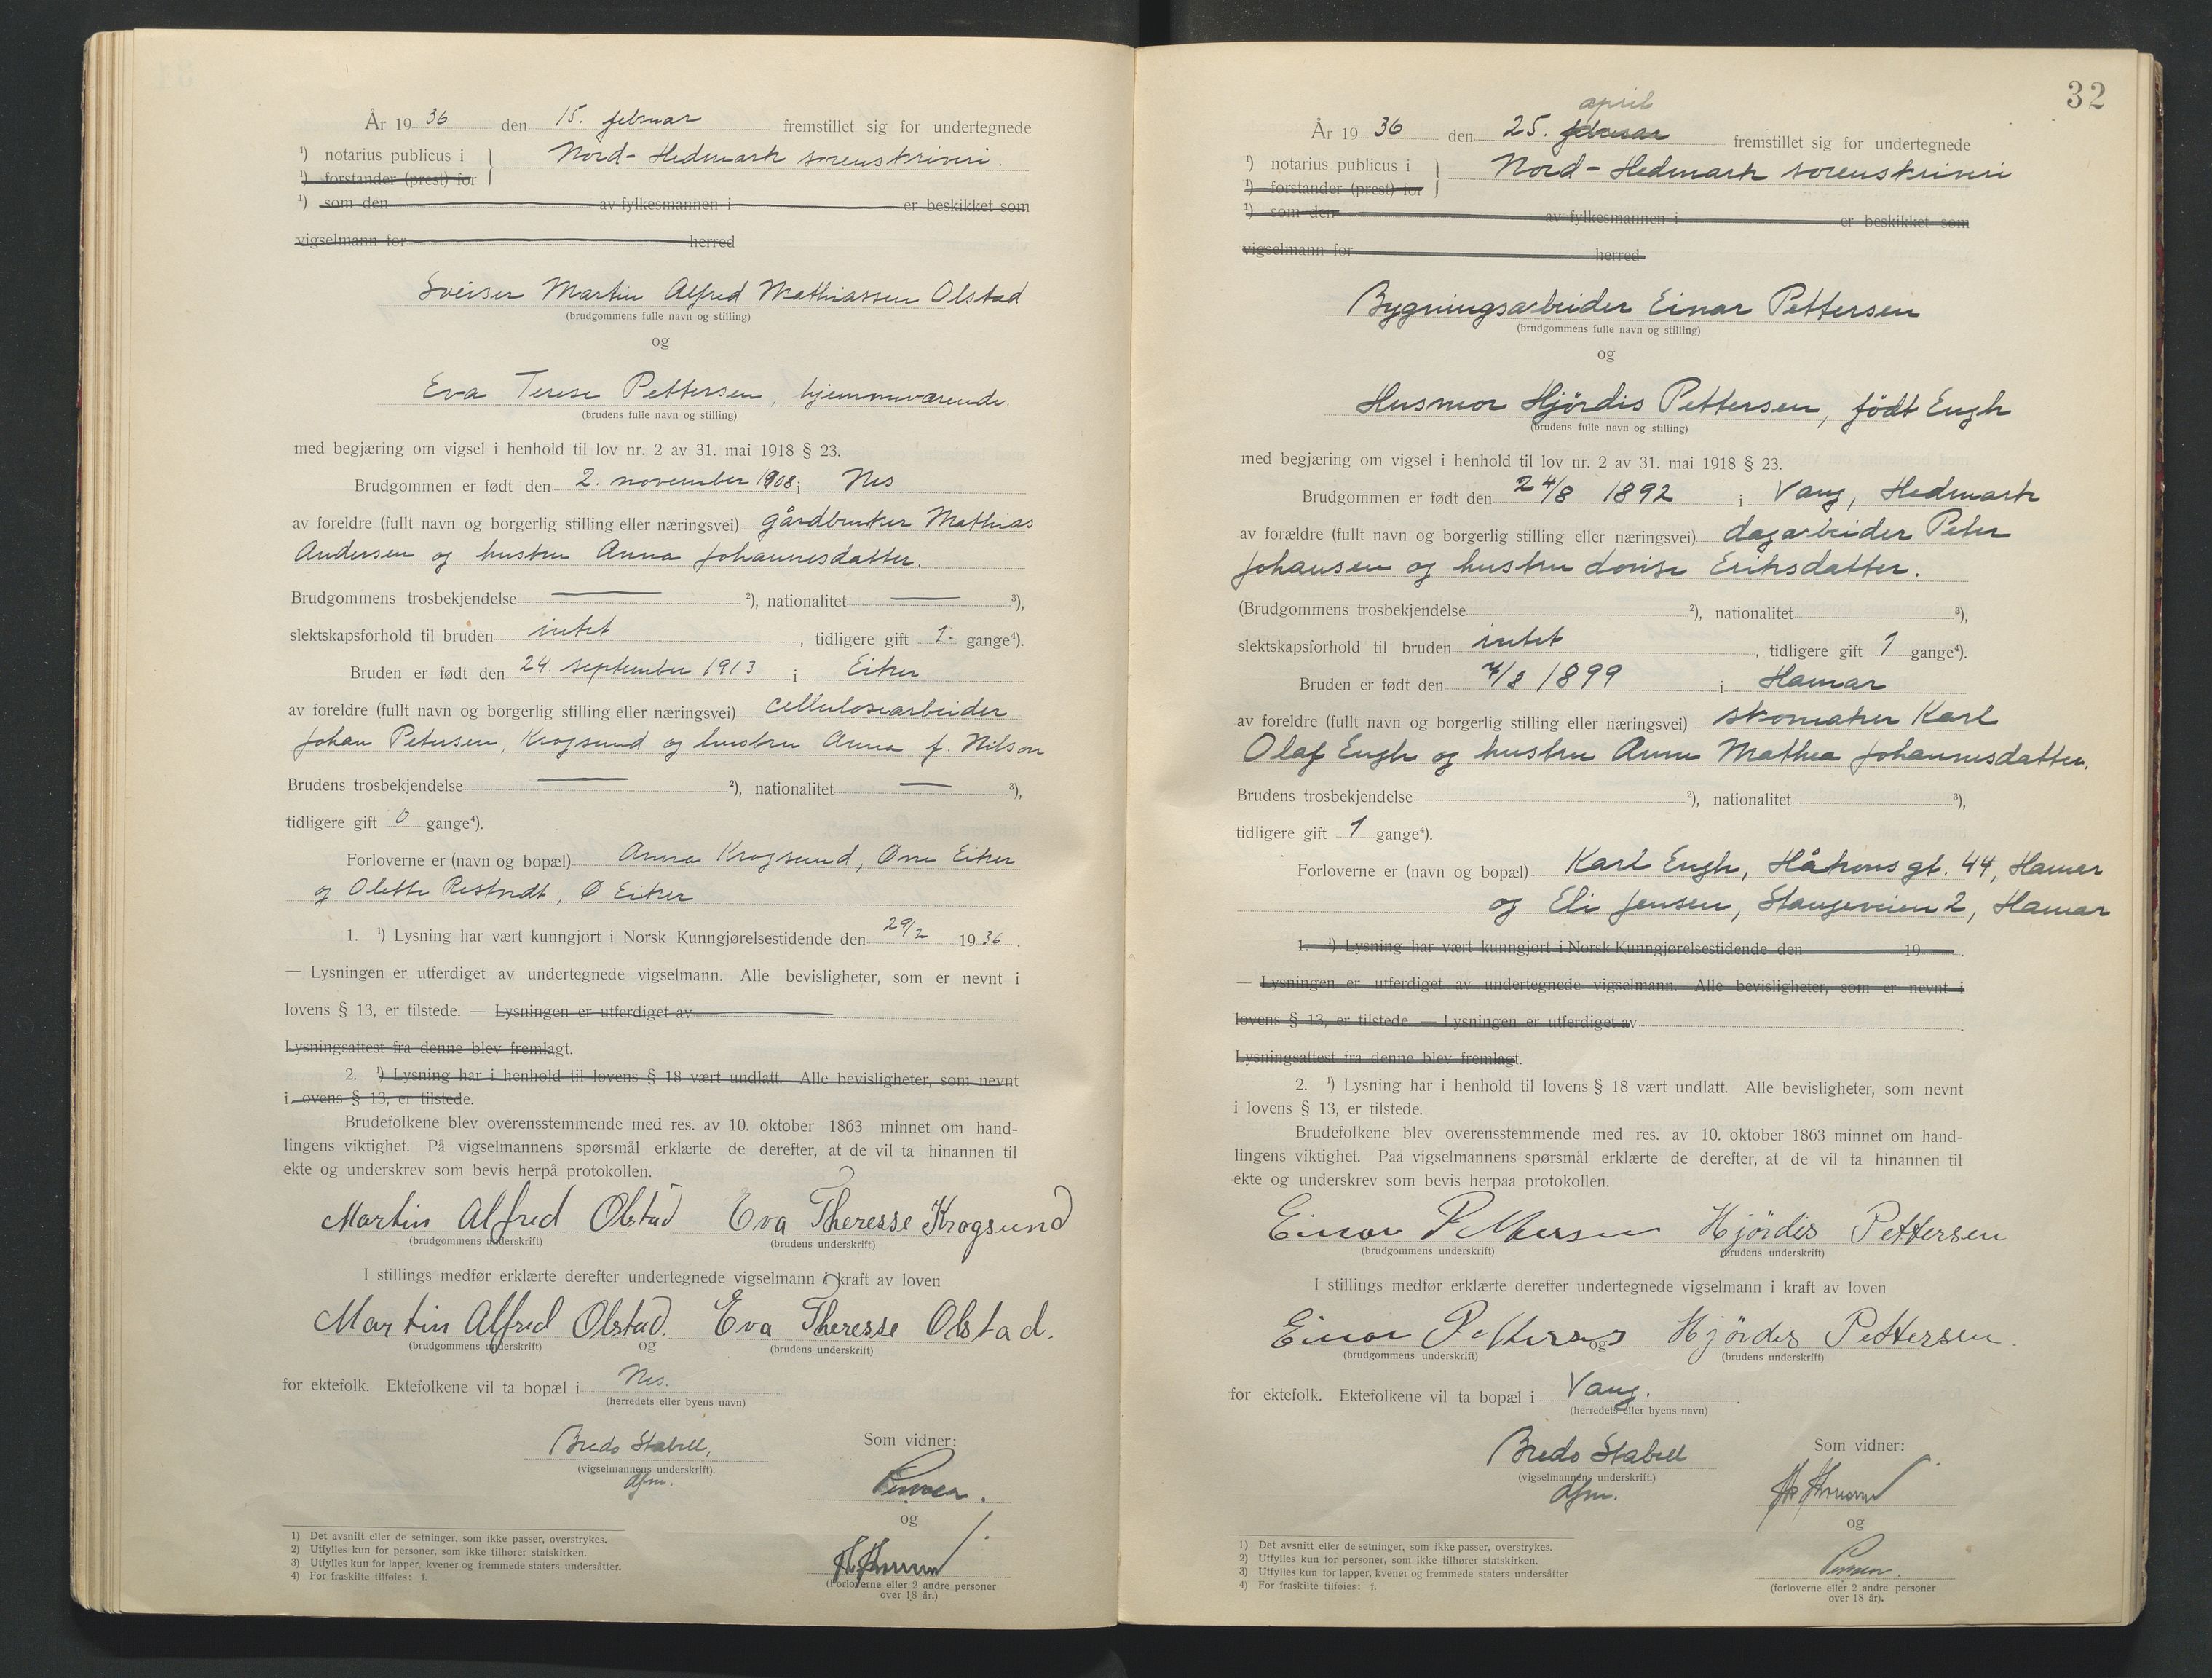 År 1936 den 15. februar fremstillet sig for undertegnede
¹) notarius publicus i Nord-Hedmark sorenskriveri.
¹) forstander (prest) for
¹) som den av fylkesmannen i er beskikket som
vigselmann for herred
Sveiser Martin Alfred Mathiassen Olstad
(brudgommens fulle navn og stilling)
og
Eva Terese Pettersen, hjemmeværende.
(brudens fulle navn og stilling)
med begjæring om vigsel i henhold til lov nr. 2 av 31. mai 1918 § 23.
Brudgommen er født den 2. november 1908 i Nes
av foreldre (fullt navn og borgerlig stilling eller næringsvei) gårdbruker Mathias
Andersen og hustru Anna Johannesdatter.
Brudgommens trosbekjendelse — ²), nationalitet — ³),
slektskapsforhold til bruden intet, tidligere gift 1. gange⁴).
Bruden er født den 24. september 1913 i Eiker
av foreldre (fullt navn og borgerlig stilling eller næringsvei) cellulosearbeider
Johan Petersen, Krogsund og hustru Anna f. Nilson
Brudens trosbekjendelse — ²), nationalitet — ³),
tidligere gift 0 gange⁴).
Forloverne er (navn og bopæl) Anna Krogsund, Øvre Eiker
og Olette, Ø Eiker
1. ¹) Lysning har vært kunngjort i Norsk Kunngjørelsestidende den 29/2 1936.
— Lysningen er utferdiget av undertegnede vigselmann. Alle bevisligheter, som er nevnt i
lovens § 13, er tilstede. — Lysningen er utferdiget av
Lysningsattest fra denne blev fremlagt.
2. ¹) Lysning har i henhold til lovens § 18 vært undlatt. Alle bevisligheter, som nevnt
i ovens § 13, er tilstede.
Brudefolkene blev overensstemmende med res. av 10. oktober 1863 minnet om hand-
lingens viktighet. På vigselmannens spørsmål erklærte de derefter, at de vil ta hinannen til
ekte og underskrev som bevis herpå protokollen.
Martin Alfred Olstad Eva Theresse Krogsund
(brudgommens underskrift) (brudens underskrift)
I stillings medfør erklærte derefter undertegnede vigselmann i kraft av loven
Martin Alfred Olstad. Eva Theresse Olstad.
(brudgommens underskrift) og (brudens underskrift)
for ektefolk. Ektefolkene vil ta bopæl i Nes.
(herredets eller byens navn)
Bredo Stabell, Som vidner:
(vigselmannens underskrift).
dfm.
og
(Forloverne eller 2 andre personer
over 18 år.)
1) Det avsnitt eller de setninger, som ikke passer, overstrykes.
2) Utfylles kun for personer, som ikke tilhører statskirken.
3) Utfylles kun for lapper, kvener og fremmede staters undersåtter.
4) For fraskilte tilføies: f.
32
april
År 1936 den 25. februar fremstillet sig for undertegnede
¹) notarius publicus i Nord-Hedmark sorenskriveri
¹) forstander (prest) for
¹) som den av fylkesmannen i er beskikket som
vigselmann for herred
Bygningsarbeider Einar Pettersen
(brudgommens fulle navn og stilling)
og
Husmor Hjördis Pettersen, födt Engh
(brudens fulle navn og stilling)
med begjæring om vigsel i henhold til lov nr. 2 av 31. mai 1918 § 23.
Brudgommen er født den 24/8 1892 i Vang, Hedmark
av forældre (fullt navn og borgerlig stilling eller næringsvei) dagarbeider Peter
Johansen og hustru Lovise Eriksdatter.
(Brudgommens trosbekjendelse ²), nationalitet ³),
slektskapsforhold til bruden intet, tidligere gift 1 gange⁴).
Bruden er født den 4/8 1899 i Hamar
av foreldre (fullt navn og borgerlig stilling eller næringsvei) skomaker Karl
Olaf Engh og hustru Anne Mathea Johannesdatter.
Brudens trosbekjendelse ²), nationalitet ³),
tidligere gift 1 gange⁴).
Forloverne er (navn og bopæl) Karl Engh, Håkons gt. 44, Hamar
og Eli Jensen, Stangeveien 2, Hamar
1. ¹) Lysning har vært kunngjort i Norsk Kunngjørelsestidende den 19 .
— Lysningen er utferdiget av undertegnede vigselmann. Alle bevisligheter, som er nevnt i
lovens § 13, er tilstede. — Lysningen er utferdiget av
Lysningsattest fra denne blev fremlagt.
2. ¹) Lysning har i henhold til lovens § 18 vært undlatt. Alle bevisligheter, som nevnt
i lovens § 13, er tilstede.
Brudefolkene blev overensstemmende med res. av 10. oktober 1863 minnet om hand-
lingens viktighet. Paa vigselmannens spørsmål erklærte de derefter, at de vil ta hinannen til
ekte og underskrev som bevis herpaa protokollen.
Einar Pettersen Hjördis Pettersen
(brudgommens underskrift) (brudens underskrift)
I stillings medfør erklærte derefter undertegnede vigselmann i kraft av loven
Einar Pettersen og Hjördis Pettersen.
(brudgommens underskrift) (brudens underskrift)
for ektefolk. Ektefolkene vil ta bopæl i Vang.
(herredets eller byens navn)
Bredo Stabell Som vidner:
(vigselmannens underskrift.)
dfm.
og
(forloverne eller 2 andre personer
over 18 år).
1) Det avsnitt eller de setninger, som ikke passer, overstrykes.
2) Utfylles kun for personer, som ikke tilhører statskirken.
3) Utfylles kun for lapper, kvener og fremmede staters undersåtter
4) For fraskilte tilføies: f.